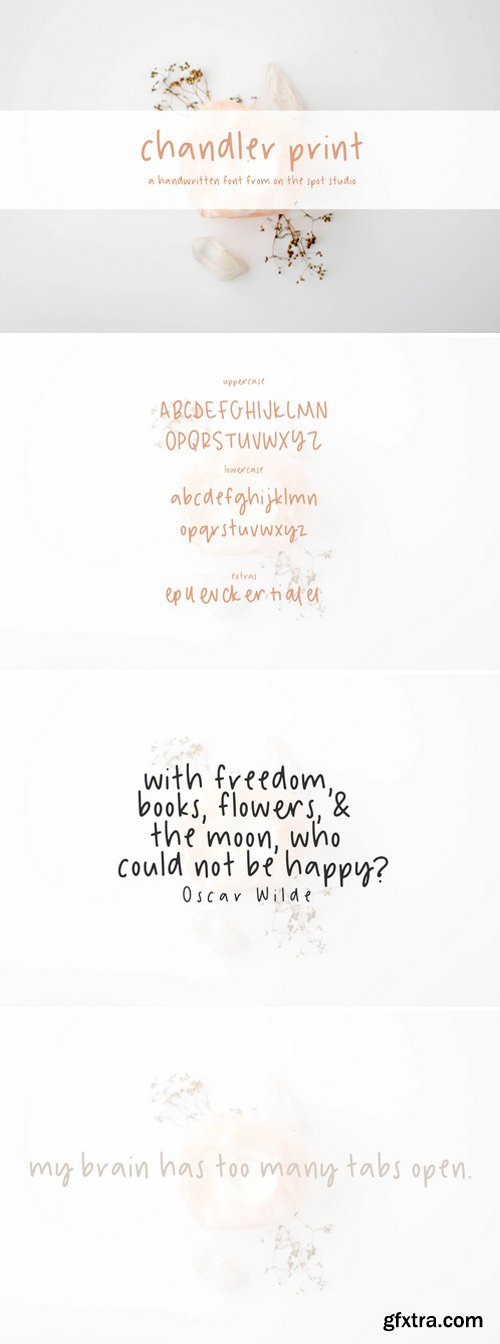 chandler print
a handwritten font from on the spot studio
uppercase
ABCDEFGHIJKLMN
OPQRSTUVWXYZ
lowercase
abcdefghijklmn
opqrstuvwxyz
extras
with freedom,
books, flowers, &
the moon, who
could not be happy?
Oscar Wilde
my brain has too many tabs open.
gfxtra.com